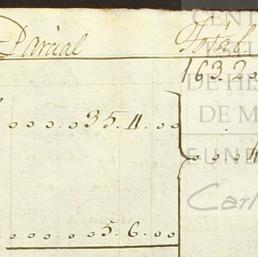 Parcial Total
163.2
35.4.
5.6.
CENT
DE HIS
DE M
FUND
Carl